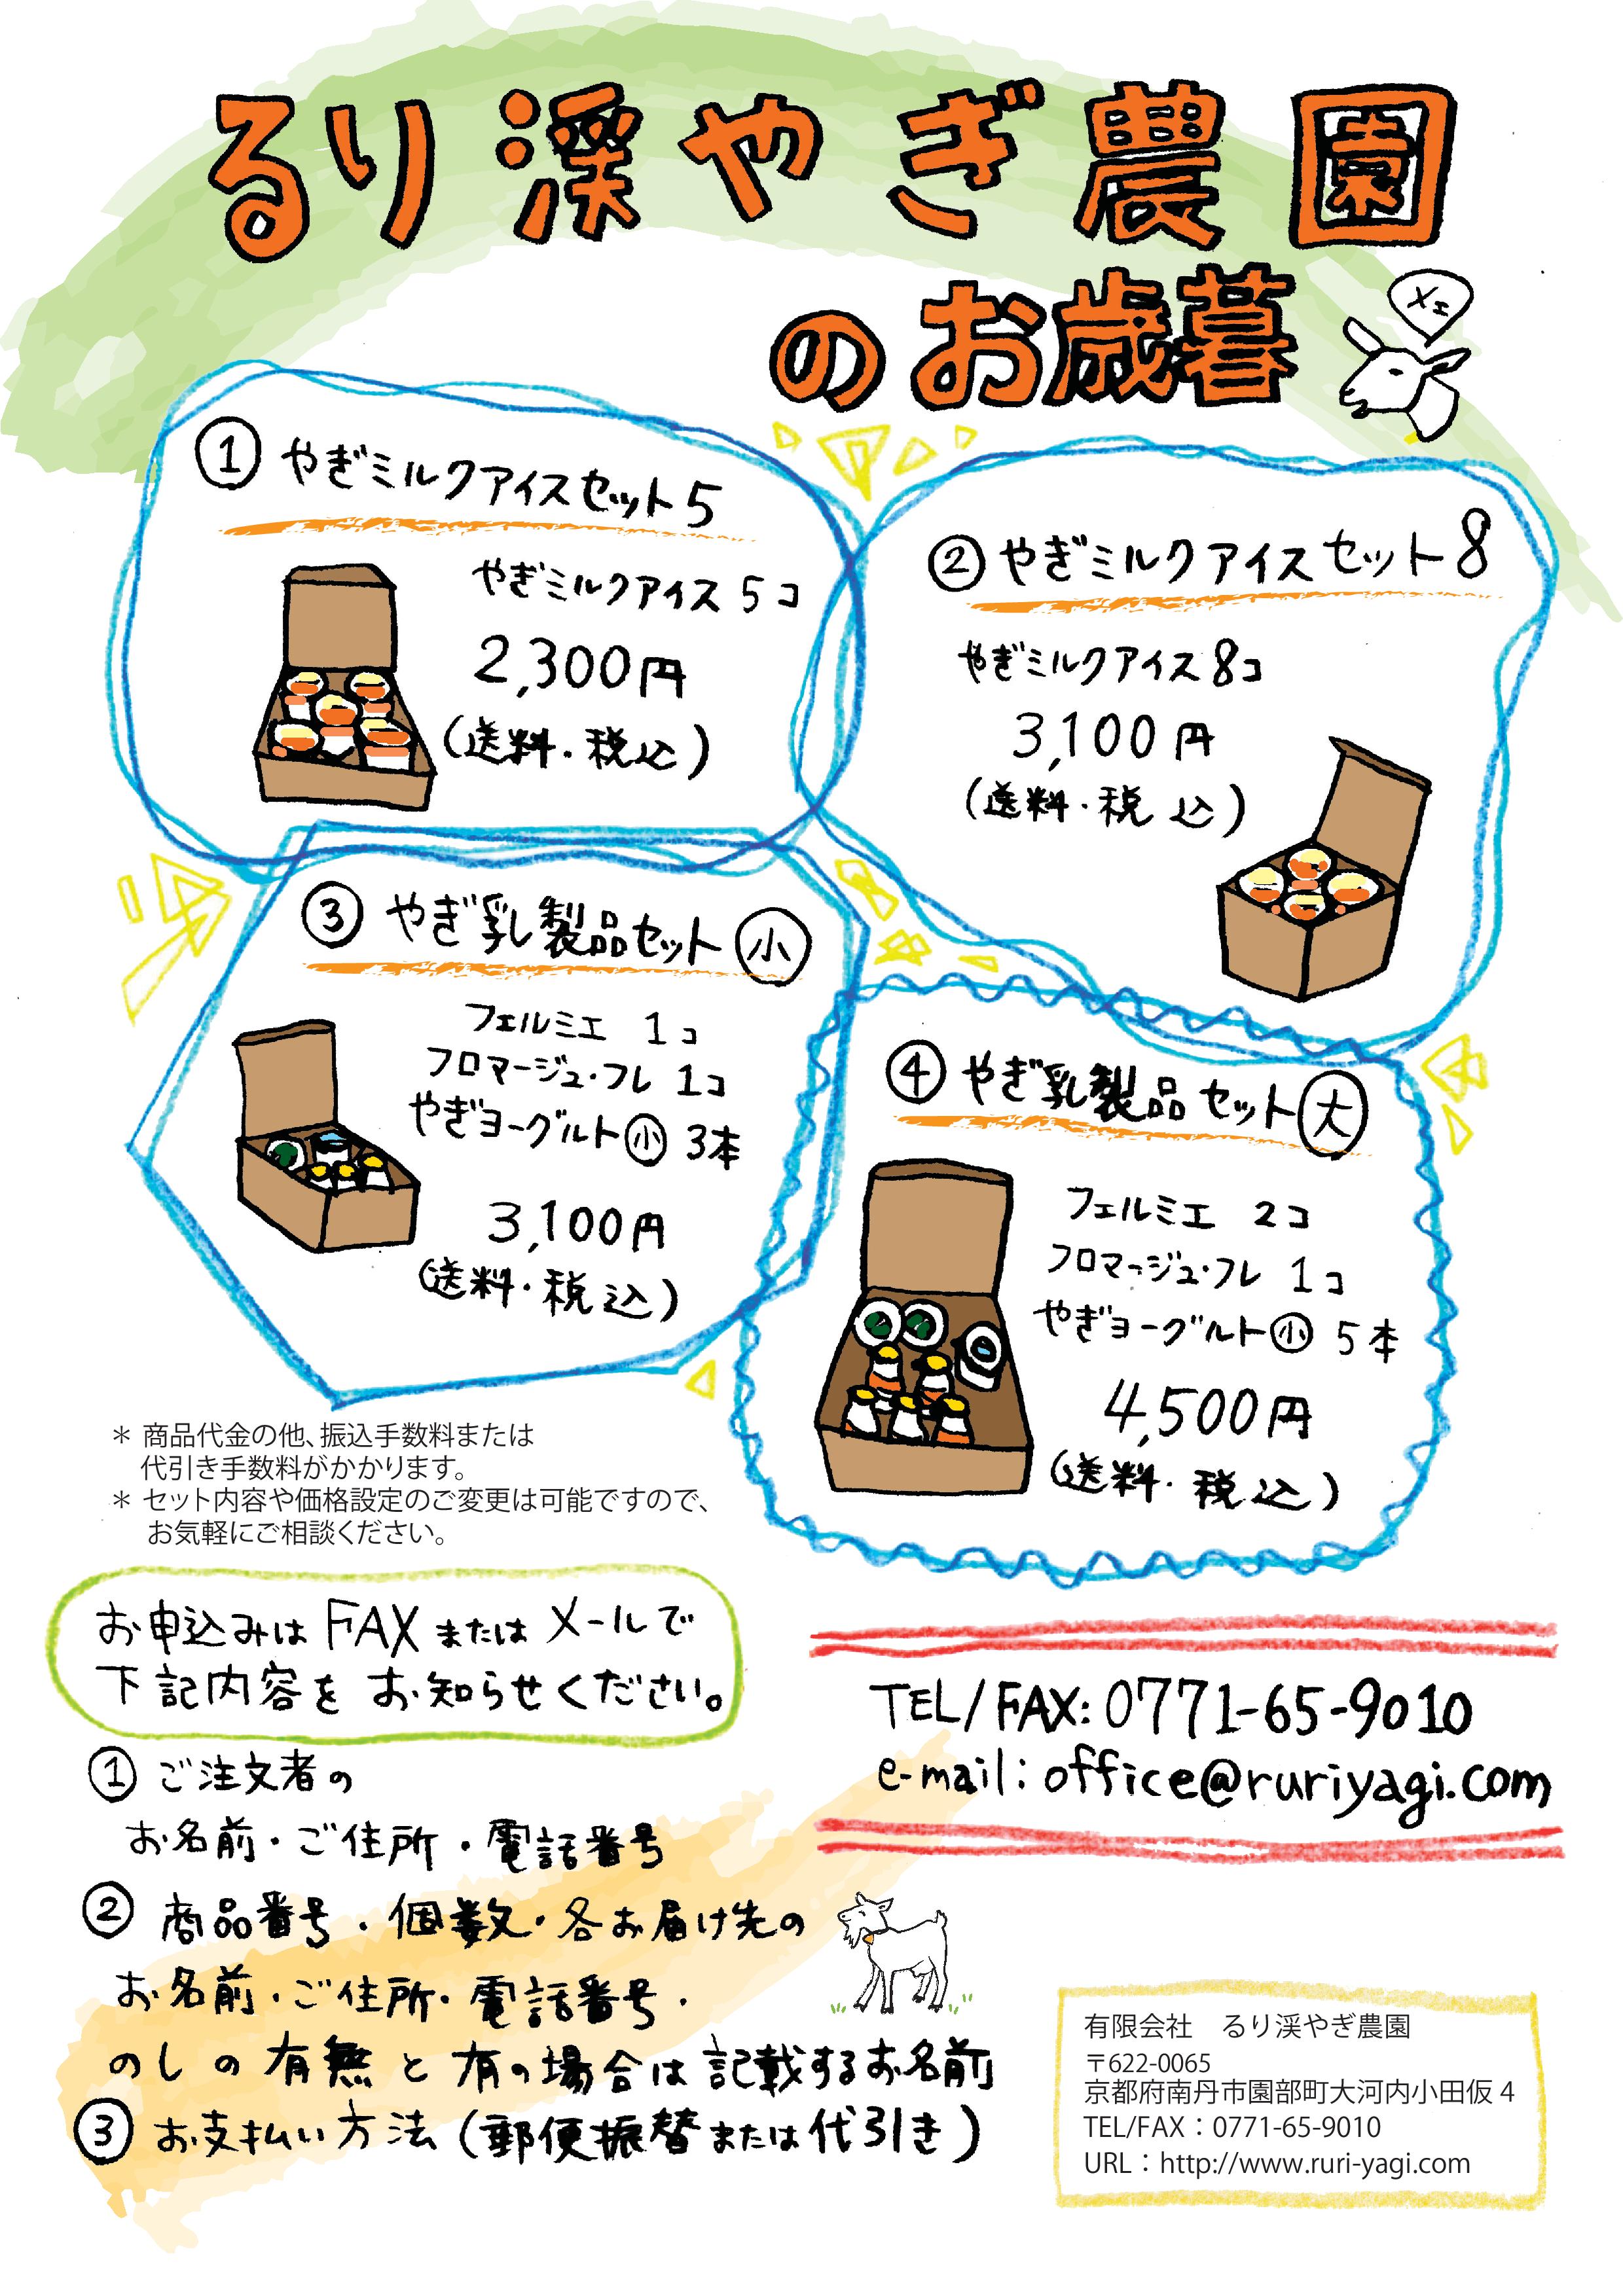 るり渓やぎ農園
のお歳暮
メェ
① やぎミルクアイスセット5
やぎミルクアイス 5コ
2,300円
(送料・税込)
② やぎミルクアイスセット8
やぎミルクアイス8コ
3,100円
(送料・税込)
③ やぎ乳製品セット㊤小
フェルミエ 1コ
フロマージュ・フレ 1コ
やぎヨーグルト小 3本
3,100円
(送料・税込)
④ やぎ乳製品セット大
フェルミエ 2コ
フロマージュ・フレ 1コ
やぎヨーグルト小 5本
4,500円
(送料・税込)
＊ 商品代金の他、振込手数料または
代引き手数料がかかります。
＊ セット内容や価格設定のご変更は可能ですので、
お気軽にご相談ください。
お申込みは FAX または メールで
下記内容を お知らせください。
① ご注文者の
お名前・ご住所・電話番号
② 商品番号・個数・各お届け先の
お名前・ご住所・電話番号・
のしの有無と有の場合は記載するお名前
③ お支払い方法(郵便振替または代引き)
TEL/FAX:0771-65-9010
e-mail:office@ruriyagi.com
有限会社 るり渓やぎ農園
〒622-0065
京都府南丹市園部町大河内小田仮4
TEL/FAX：0771-65-9010
URL：http://www.ruri-yagi.com